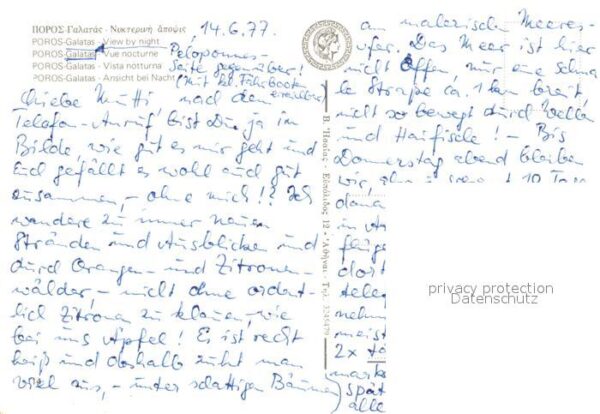 ΠΟΡΟΣ-Γαλατάς - Νυκτερινή άποψις
POROS-Galatas - View by night
POROS-Galatas - Vue nocturne
POROS-Galatas - Vista notturna
POROS-Galatas - Ansicht bei Nacht
14.6.77.
Peloponnes-
Seite gegenüber!
(mit kl. Fährbooten
erreichbar)
Liebe Mutti, nach dem
Telefon-Anruf bist Du ja im
Bilde, wie gut es mir geht und
Euch gefällt es wohl auch gut
zusammen, - ohne mich!? Ich
wandere zu immer neuen
Stränden und Ausblicken und
durch Orangen- und Zitronen-
wälder, - nicht ohne ordent-
lich Zitronen zu klauen, wie
bei uns Äpfel! Es ist recht
heiß und deshalb zieht man
viel aus, - unter schattigen Bäumen
Β. Ήσαΐας - Εὐπόλιδος 12 - Ἀθῆναι - Τηλ. 3245479
am malerischen Meeres-
ufer. Das Meer ist hier
nicht offen, nur eine schma-
le Straße ca. 1 km breit,
nicht so bewegt durch Wellen
und Haifische! - Bis
Donnerstag abend bleiben
wir, 10 Tage
dana
in A
flüge
dort
teleg
nehm
meist
2x
marke
Spät
alle
privacy protection
Datenschutz